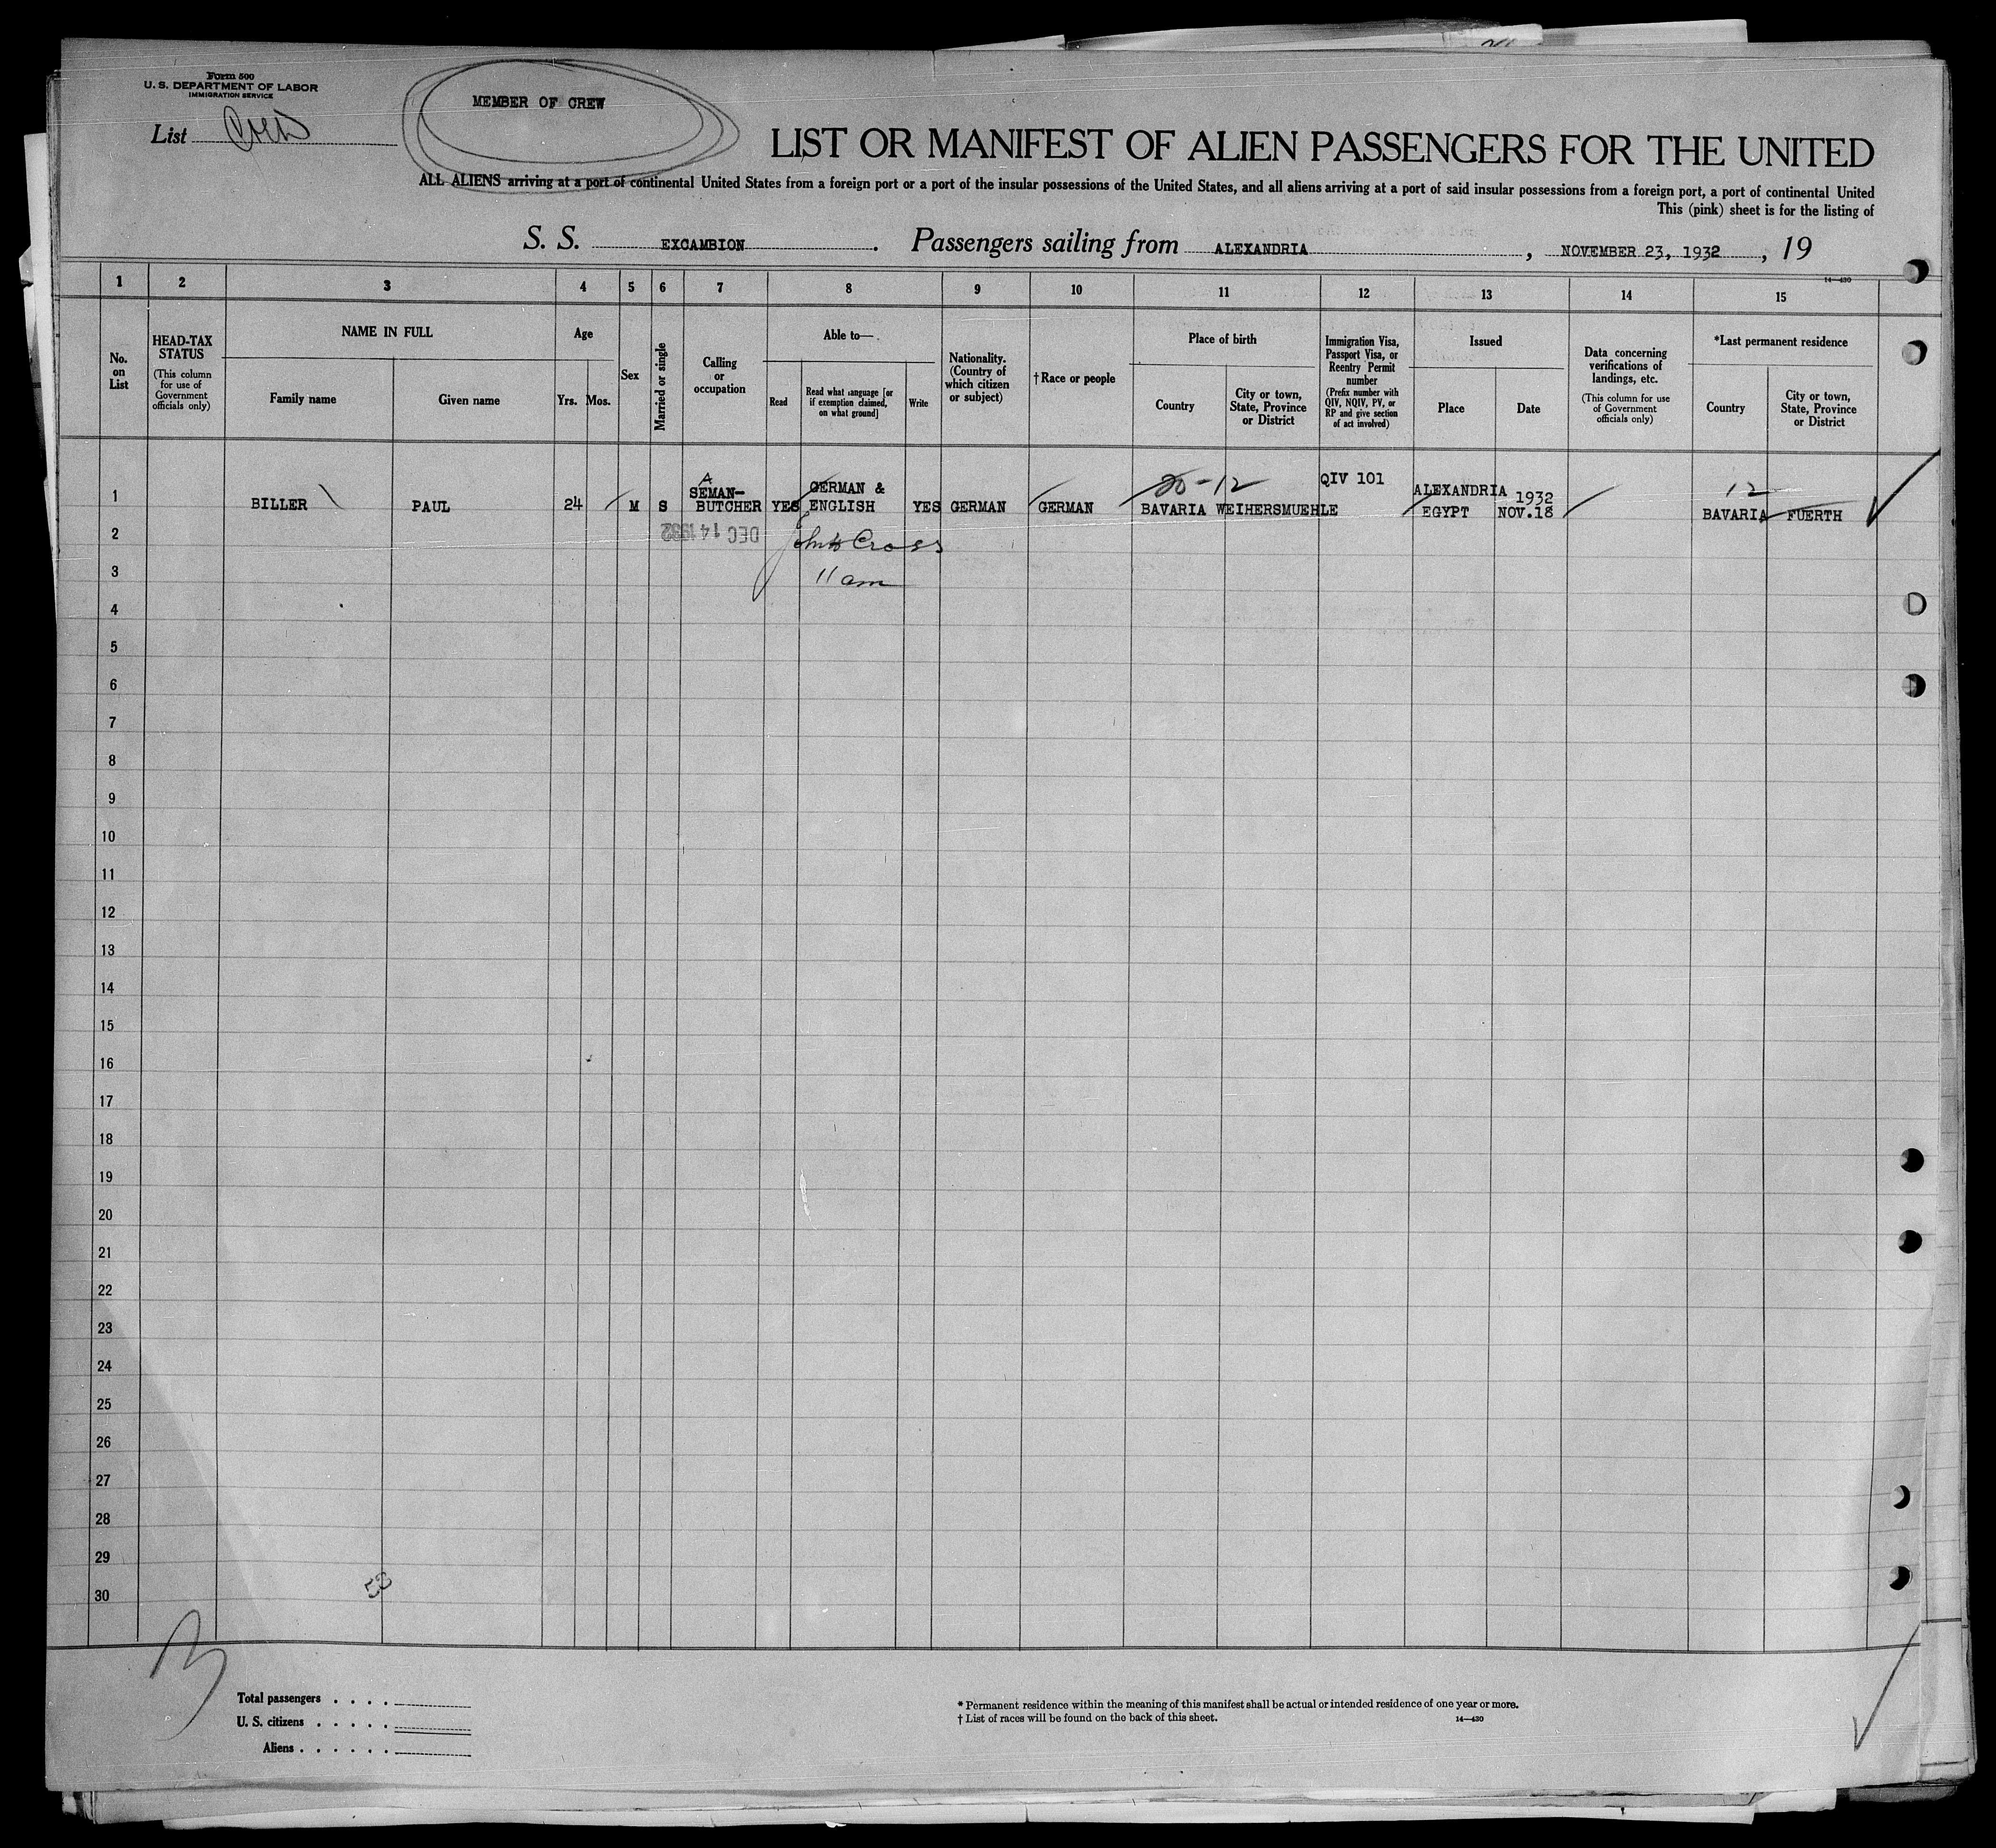 Form 500
U. S. DEPARTMENT OF LABOR
IMMIGRATION SERVICE
List Crew
MEMBER OF CREW
LIST OR MANIFEST OF ALIEN PASSENGERS FOR THE UNITED
ALL ALIENS arriving at a port of continental United States from a foreign port or a port of the insular possessions of the United States, and all aliens arriving at a port of said insular possessions from a foreign port, a port of continental United
This (pink) sheet is for the listing of
S. S. EXCAMBION. Passengers sailing from ALEXANDRIA, NOVEMBER 23, 1932, 19
14—430
1 2 3 4 5 6 7 8 9 10 11 12 13 14 15
No. on List
HEAD-TAX STATUS
(This column for use of Government officials only)
NAME IN FULL
Family name
Given name
Age
Yrs. Mos.
Sex
Married or single
Calling or occupation
Able to—
Read
Read what language [or if exemption claimed, on what ground]
Write
Nationality. (Country of which citizen or subject)
†Race or people
Place of birth
Country
City or town, State, Province or District
Immigration Visa, Passport Visa, or Reentry Permit number
(Prefix number with QIV, NQIV, PV, or RP and give section of act involved)
Issued
Place
Date
Data concerning verifications of landings, etc.
(This column for use of Government officials only)
*Last permanent residence
Country
City or town, State, Province or District
A
20-12
12
1 BILLER PAUL 24 M S SEMAN-BUTCHER YES GERMAN & ENGLISH YES GERMAN GERMAN BAVARIA WEIHERSMUEHLE QIV 101 ALEXANDRIA EGYPT 1932 NOV.18 BAVARIA FUERTH
2 DEC 14 1932 John Cross
3 11 am
4
5
6
7
8
9
10
11
12
13
14
15
16
17
18
19
20
21
22
23
24
25
26
27
28
29
30
Total passengers . . . .
U. S. citizens . . . . .
Aliens . . . . . .
* Permanent residence within the meaning of this manifest shall be actual or intended residence of one year or more.
† List of races will be found on the back of this sheet.
14—430